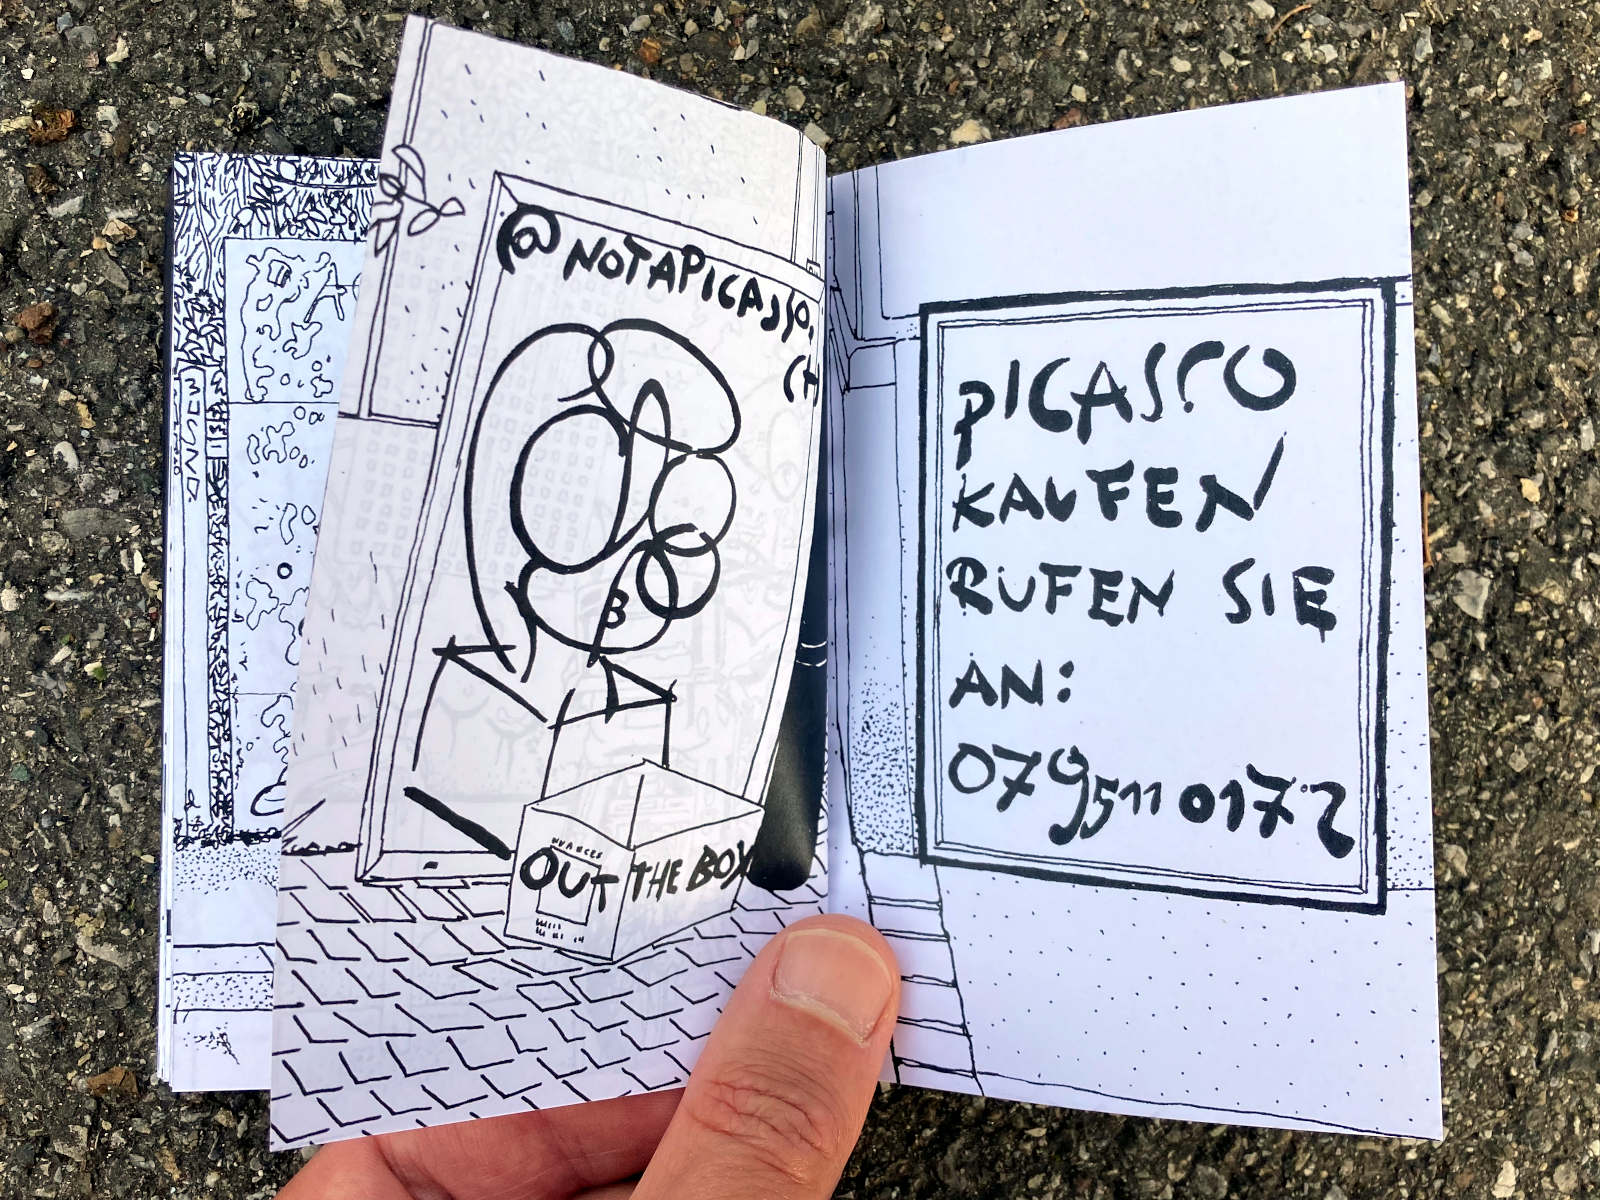 @NOTAPICASSO.
CH
B
NUANCES
OUT THE BOX
PICASSO
KAUFEN
RUFEN SIE
AN:
0795110172